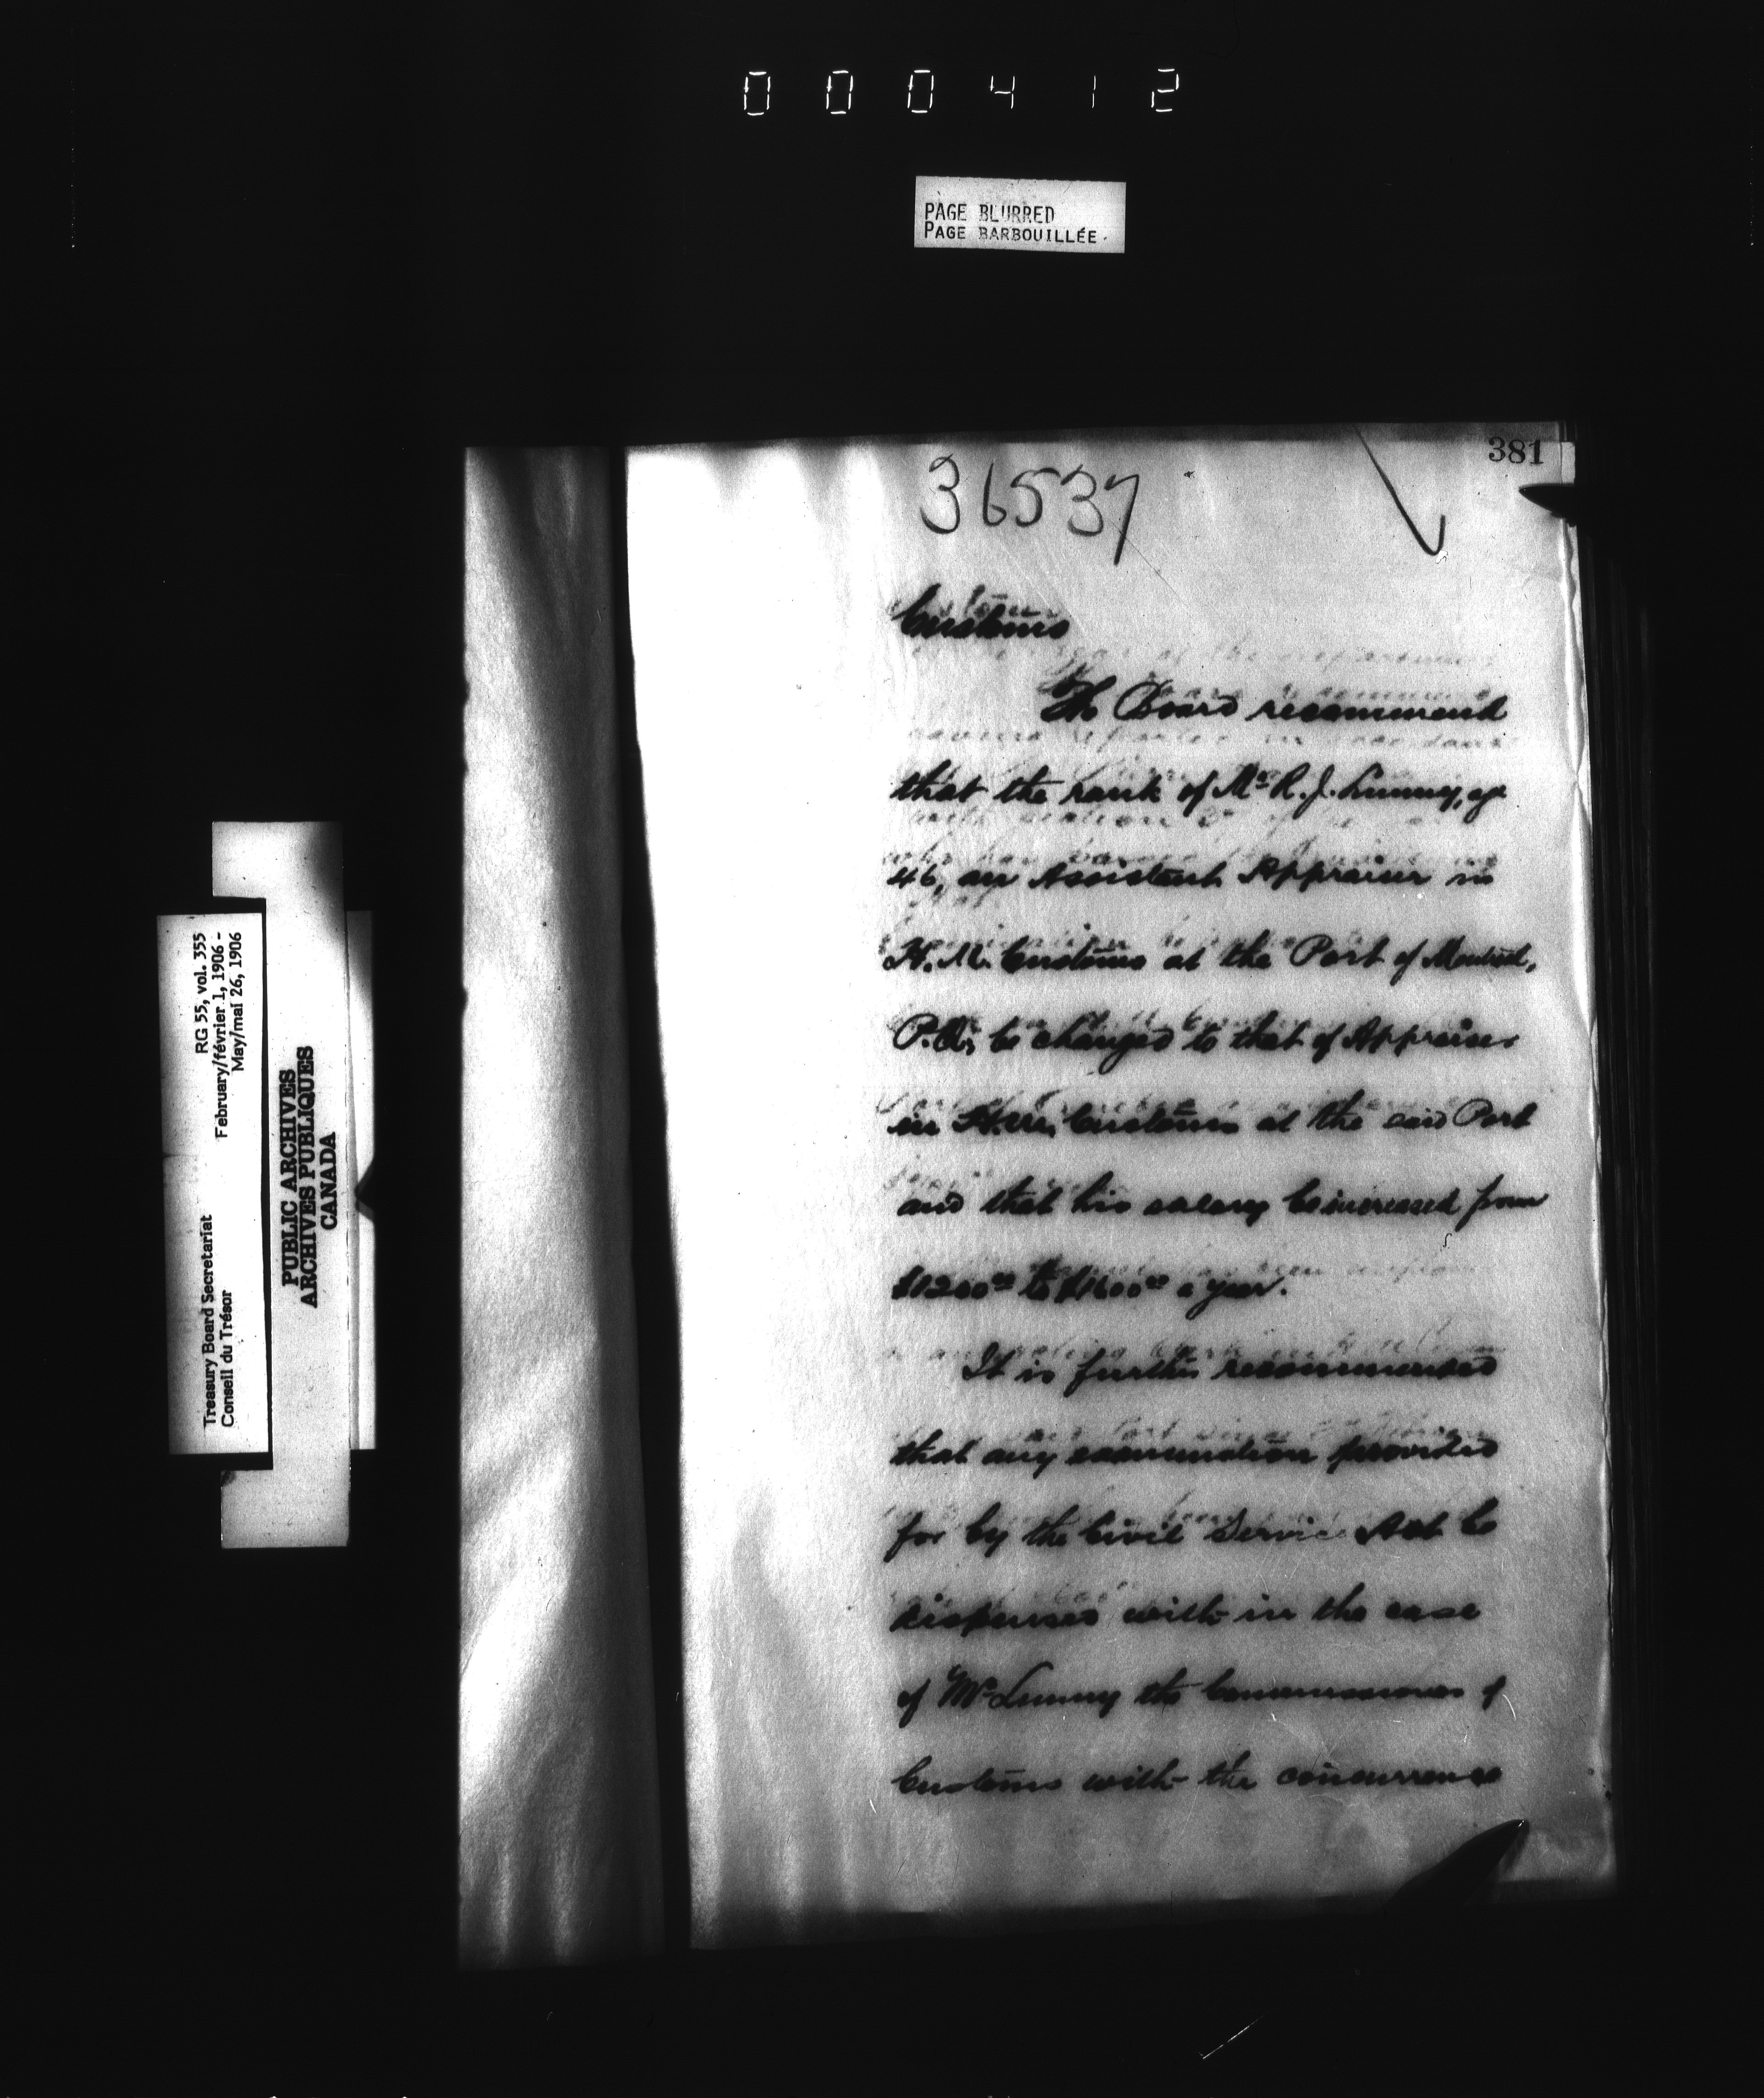 000412
PAGE BLURRED
PAGE BARBOUILLÉE.
381
36537
Customs
The Board recommend
that the rank of Mr R. J. Lunny, age
46, an Assistant Appraiser in
H. M. Customs at the Port of Montreal,
P.Q., be changed to that of Appraiser
in H.M. Customs at the said Port
and that his salary be increased from
$1200.00 to $1600.00 a year.
It is further recommended
that any examination provided
for by the Civil Service Act be
dispensed with in the case
of Mr Lunny the Commissioner of
Customs with the concurrence
RG 55, vol. 355
February/février 1, 1906 -
May/mai 26, 1906
Treasury Board Secretariat
Conseil du Trésor
PUBLIC ARCHIVES
ARCHIVES PUBLIQUES
CANADA